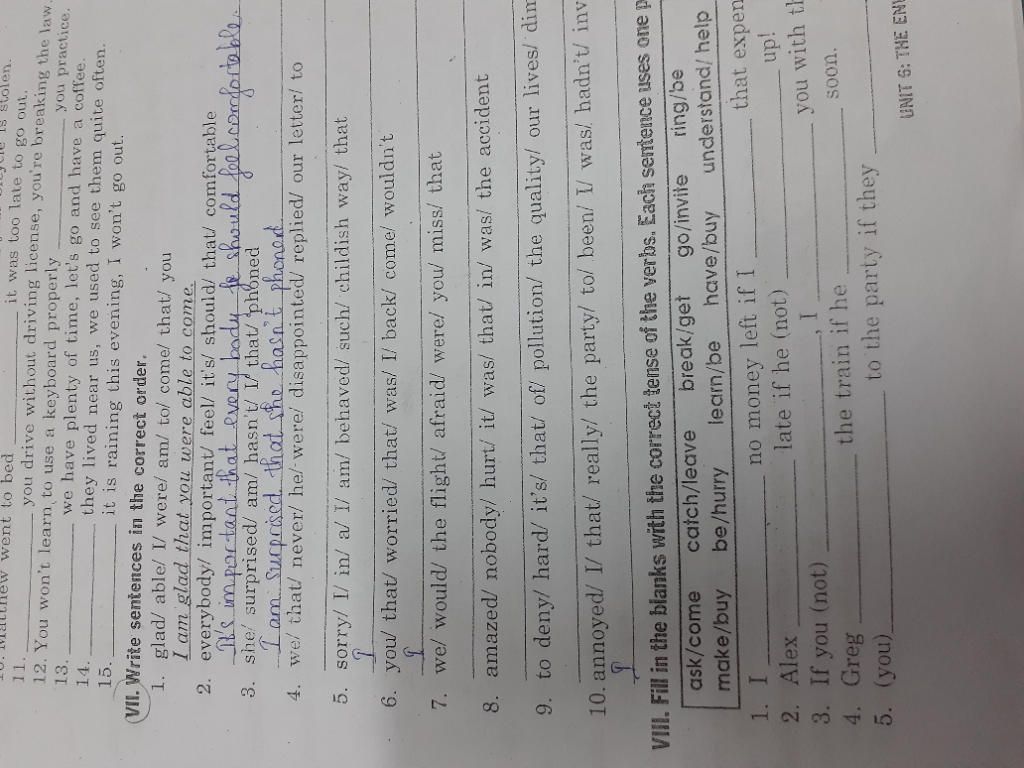 10. Matthew went to bed ______ it was too late to go out.
11. ______ you drive without driving license, you're breaking the law.
12. You won't learn to use a keyboard properly ______ you practice.
13. ______ we have plenty of time, let's go and have a coffee.
14. ______ they lived near us, we used to see them quite often.
15. ______ it is raining this evening, I won't go out.
VII. Write sentences in the correct order.
1. glad/ able/ I/ were/ am/ to/ come/ that/ you
I am glad that you were able to come.
2. everybody/ important/ feel/ it's/ should/ that/ comfortable
It's important that every body he should feel comfortable.
3. she/ surprised/ am/ hasn't/ I/ that/ phoned
I am surprised that she hasn't phoned
4. we/ that/ never/ he/ were/ disappointed/ replied/ our letter/ to
5. sorry/ I/ in/ a/ I/ am/ behaved/ such/ childish way/ that
I
6. you/ that/ worried/ that/ was/ I/ back/ come/ wouldn't
I
7. we/ would/ the flight/ afraid/ were/ you/ miss/ that
8. amazed/ nobody/ hurt/ it/ was/ that/ in/ was/ the accident
9. to deny/ hard/ it's/ that/ of/ pollution/ the quality/ our lives/ dim
10. annoyed/ I/ that/ really/ the party/ to/ been/ I/ was/ hadn't/ inv
I
VIII. Fill in the blanks with the correct tense of the verbs. Each sentence uses one p
ask/come catch/leave break/get go/invite ring/be
make/buy be/hurry learn/be have/buy understand/ help
1. I ______ no money left if I ______ that expen
2. Alex ______ late if he (not) ______ up!
3. If you (not) ______, I ______ you with th
4. Greg ______ the train if he ______ soon.
5. (you) ______ to the party if they ______
UNIT 6: THE ENV